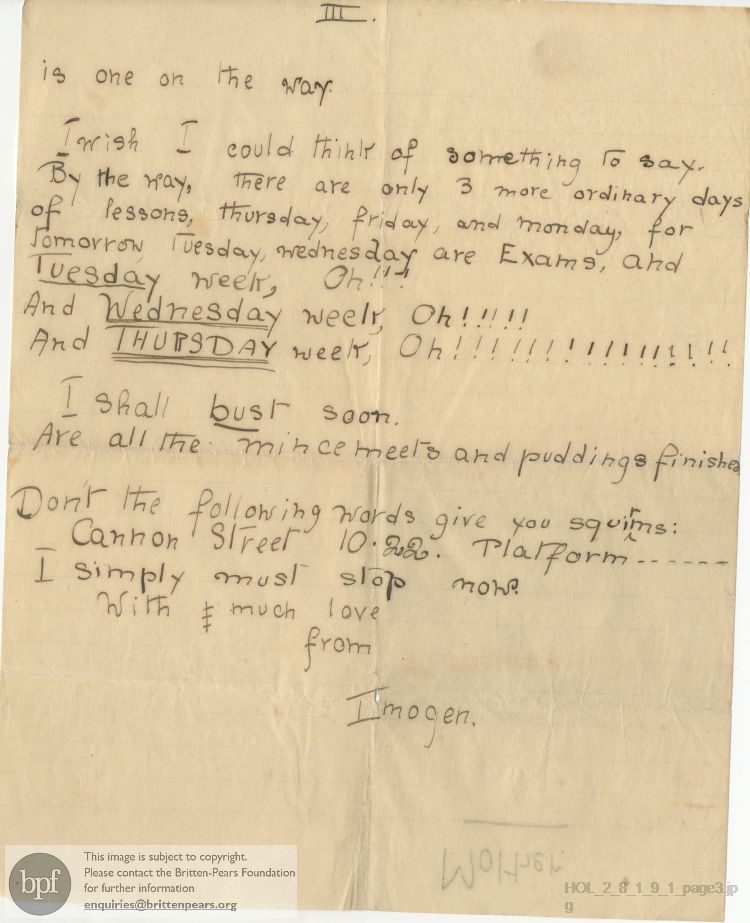 III.
is one on the way.
I wish I could think of something to say.
By the way, there are only 3 more ordinary days
of lessons, thursday, friday, and monday, for
Tomorrow, Tuesday, wednesday are Exams, and
Tuesday week, Oh!!!
And Wednesday week, Oh!!!!!
And THURSDAY week, Oh!!!!!!!!!!!!!!!!
I shall bust soon.
Are all the mincemeets and puddings finished
Don't the following words give you squirms:
Cannon Street 10.22. Platform-------
I simply must stop now.
With much love
from
Imogen.
Mother.
bpf
This image is subject to copyright.
Please contact the Britten-Pears Foundation
for further information
enquiries@brittenpears.org
HOL_2_8_1_9_1_page3.jp
g